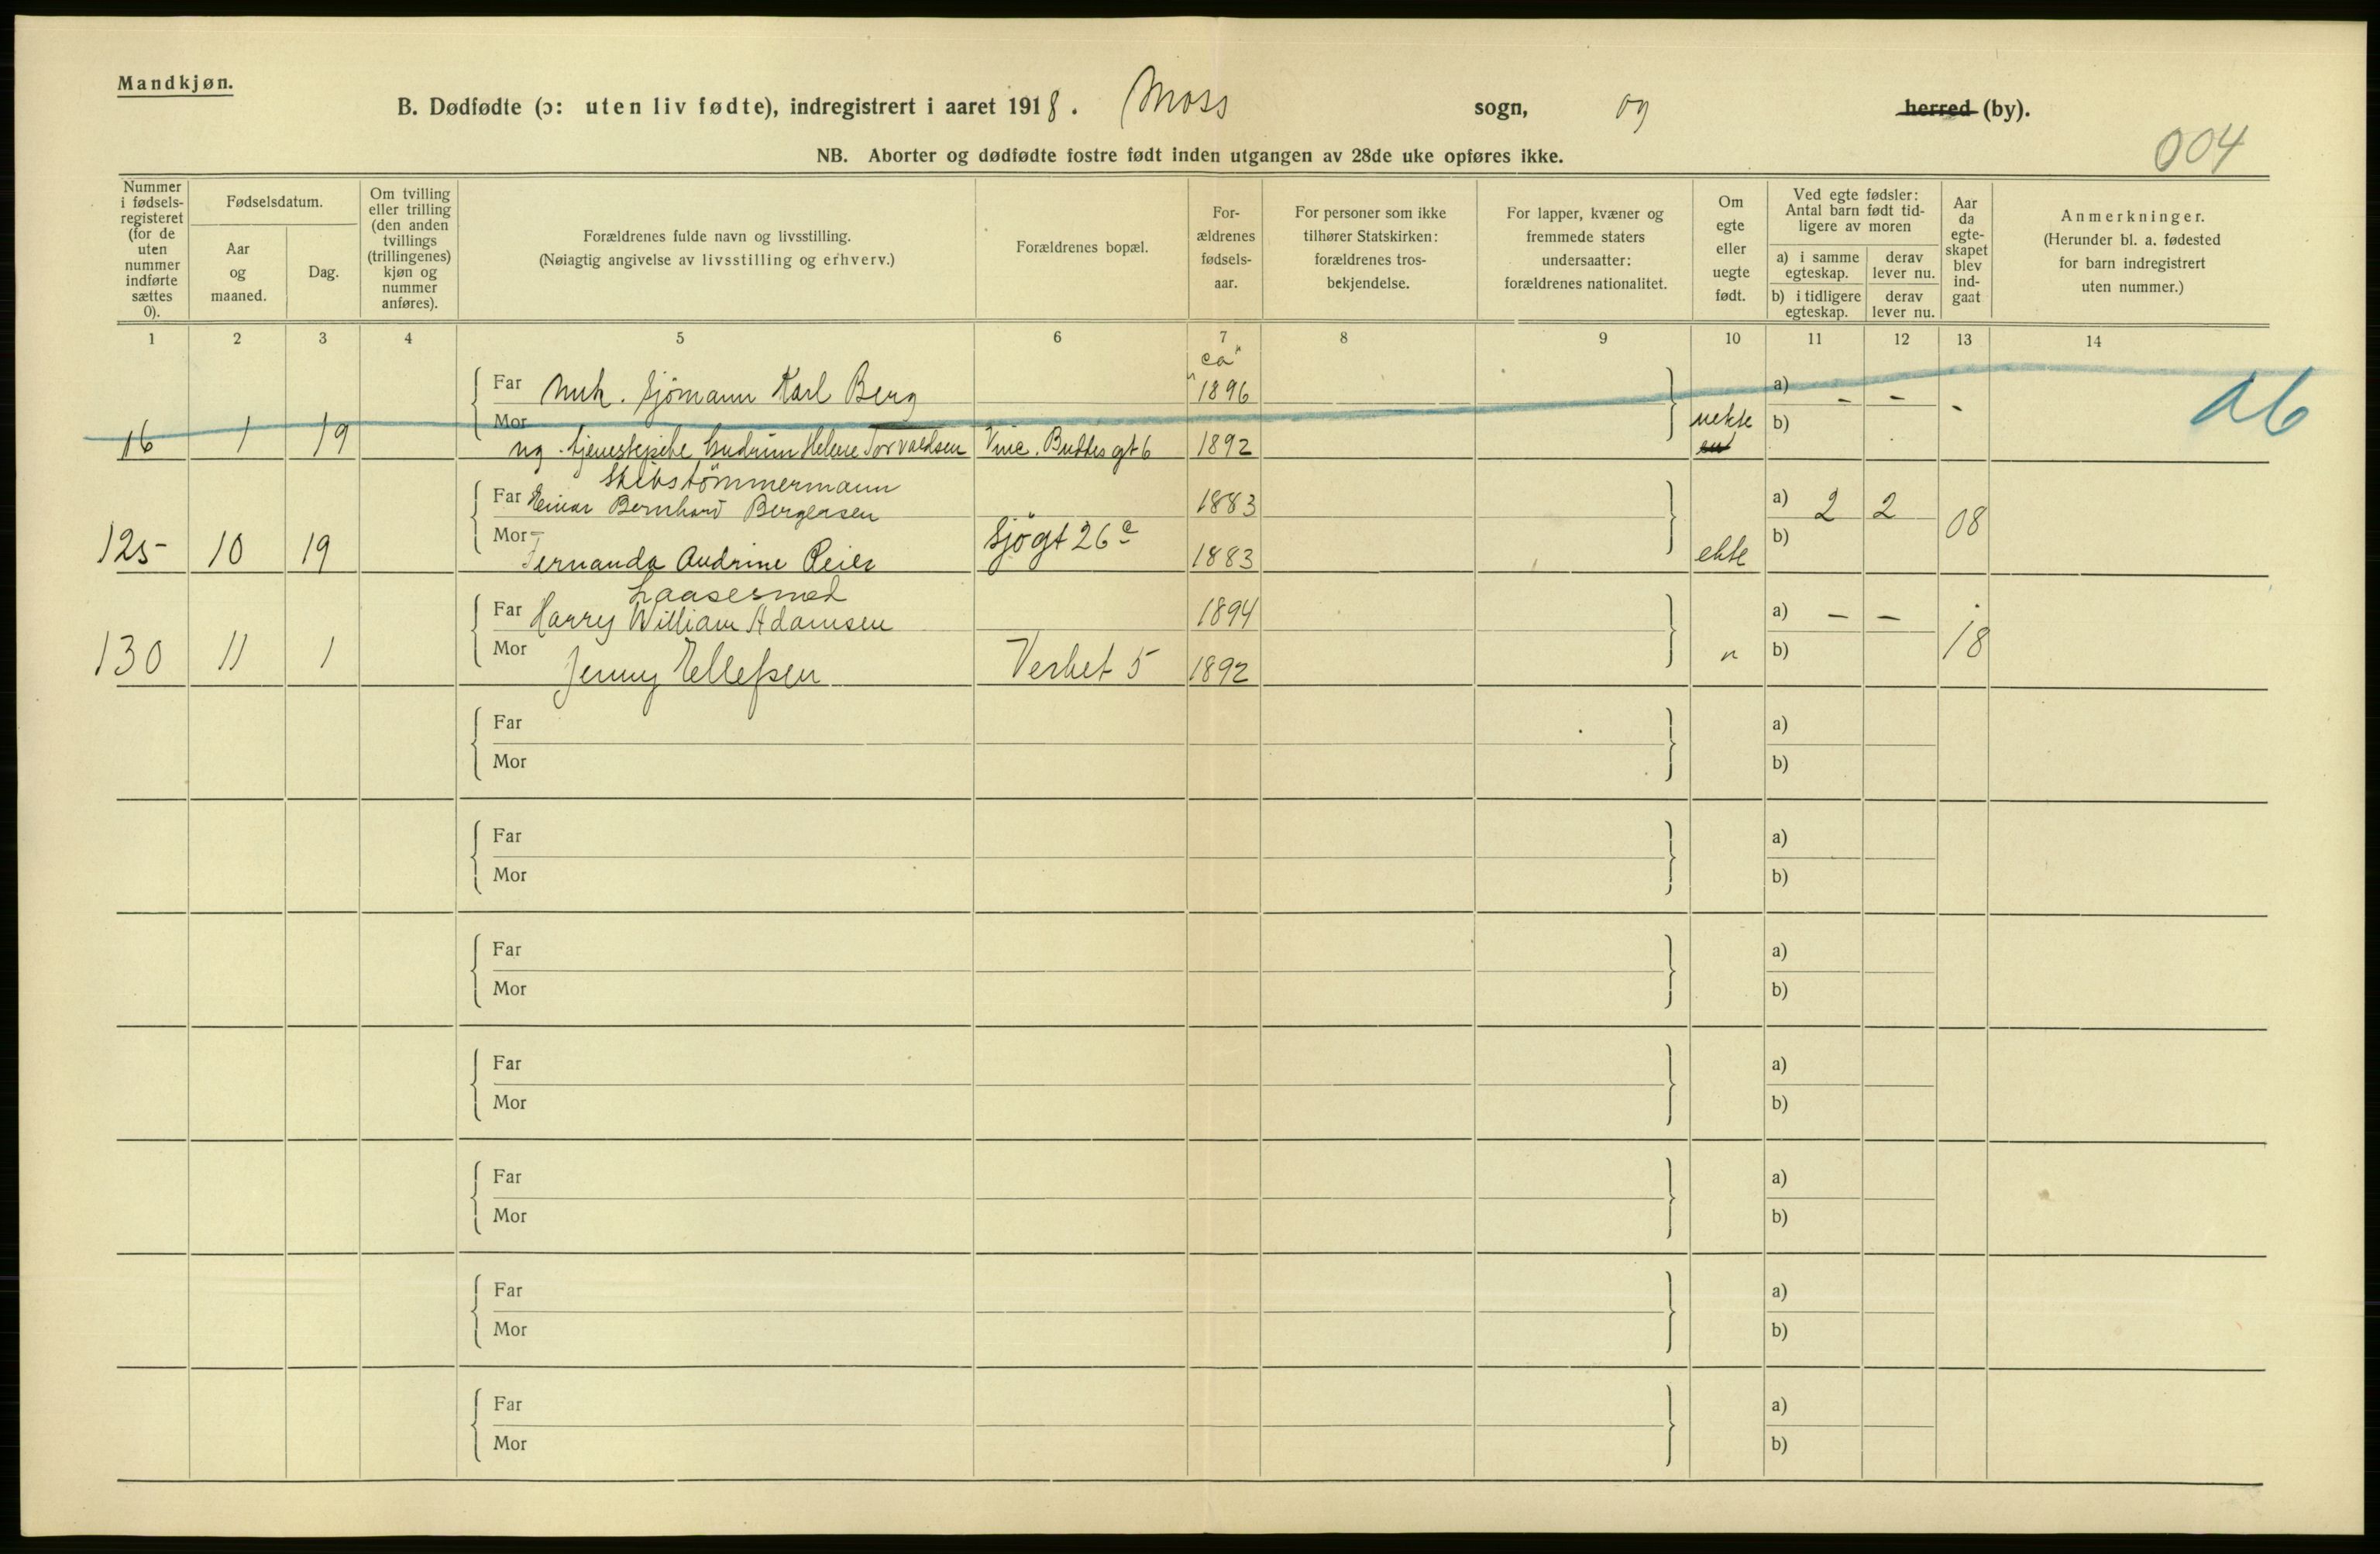 Mandkjøn.
B. Dødfødte (ɔ: uten liv fødte), indregistrert i aaret 1918. Moss sogn, og herred (by).
004
NB. Aborter og dødfødte fostre født inden utgangen av 28de uke opføres ikke.
Nummer i fødsels-registeret (for de uten nummer indførte sættes 0).
Fødselsdatum.
Aar og maaned.
Dag.
Om tvilling eller trilling (den anden tvillings (trillingenes) kjøn og nummer anføres).
Forældrenes fulde navn og livsstilling.
(Nøiagtig angivelse av livsstilling og erhverv.)
Forældrenes bopæl.
For-ældrenes fødsels-aar.
For personer som ikke tilhører Statskirken: forældrenes tros-bekjendelse.
For lapper, kvæner og fremmede staters undersaatter: forældrenes nationalitet.
Om egte eller uegte født.
Ved egte fødsler: Antal barn født tid-ligere av moren
a) i samme egteskap.
derav lever nu.
b) i tidligere egteskap.
derav lever nu.
Aar da egte-skapet blev ind-gaat
Anmerkninger.
(Herunder bl. a. fødested for barn indregistrert uten nummer.)
1 2 3 4 5 6 7 8 9 10 11 12 13 14
ca
Far Sjømann Karl Berg 1896 a) - - -
16 1 19 Mor tjenestepike Gudrun Helene Torvaldsen Vinc. Buddes gt 6 1892 uekte b)
Skibstömmermann
Far Einar Bernhard Bergersen 1883 a) 2 2 08
125 10 19 Mor Fernanda Andrine Reier Sjögt 26 c 1883 ekte b)
Laasesmed
Far Harry William Adamsen 1894 a) - - 18
130 11 1 Mor Jenny Ellefsen Verket 5 1892 " b)
Far a)
Mor b)
Far a)
Mor b)
Far a)
Mor b)
Far a)
Mor b)
Far a)
Mor b)
Far a)
Mor b)
Far a)
Mor b)